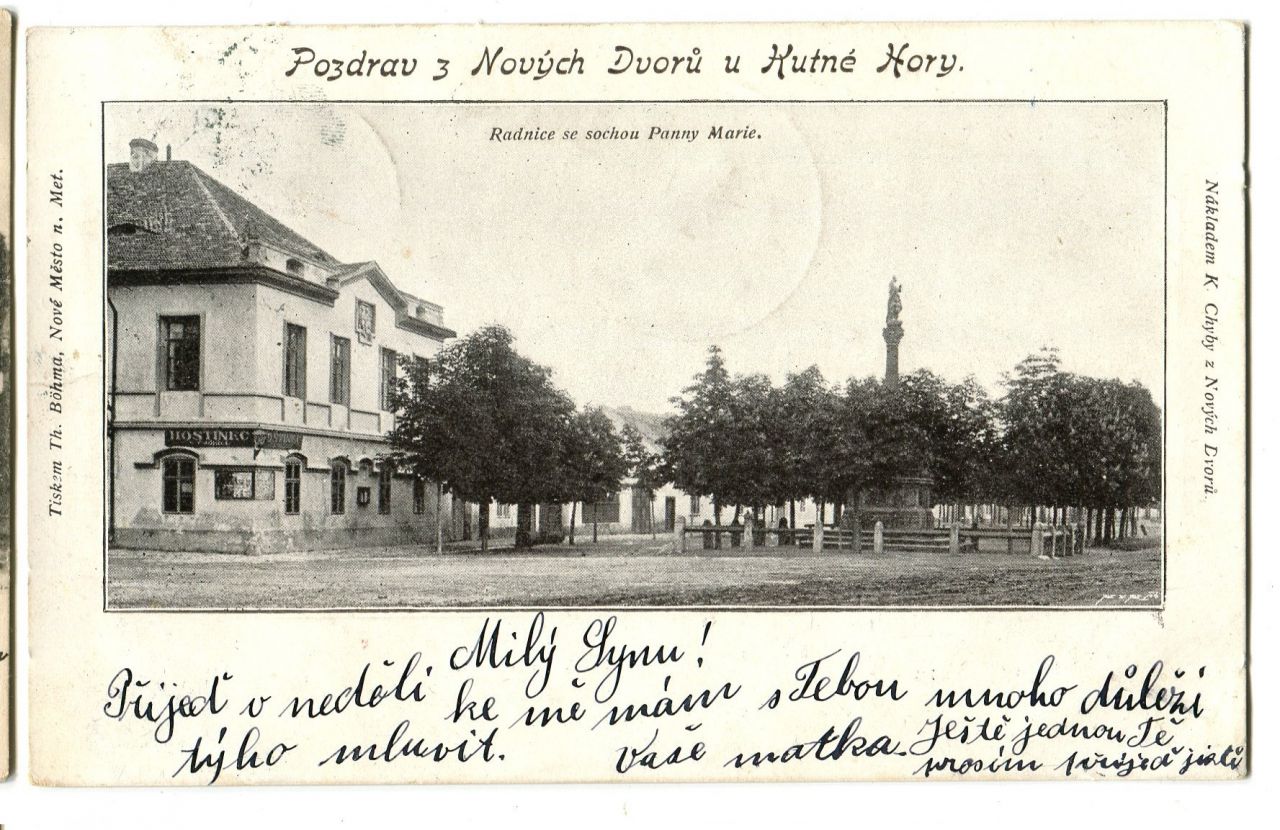 Pozdrav z Nových Dvorů u Kutné Hory.
Radnice se sochou Panny Marie.
Tiskem Th. Böhma, Nové Město n. Met.
Nákladem K. Chyby z Nových Dvorů.
HOSTINEC
Milý Synu!
Přijeď v neděli ke mě mám s Tebou mnoho důleži
týho mluvit. Vaše matka. Ještě jednou Tě
prosím přijeď jistě